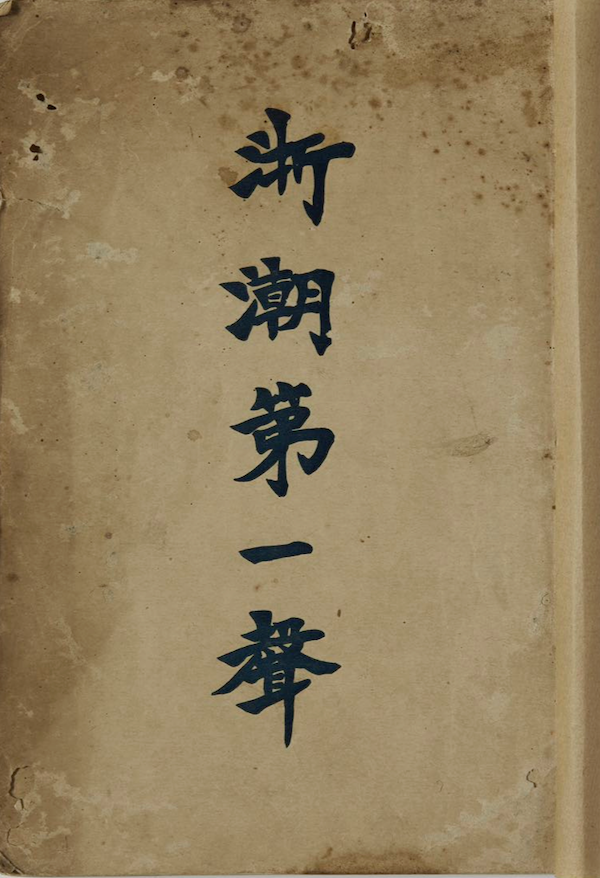 浙潮第一聲